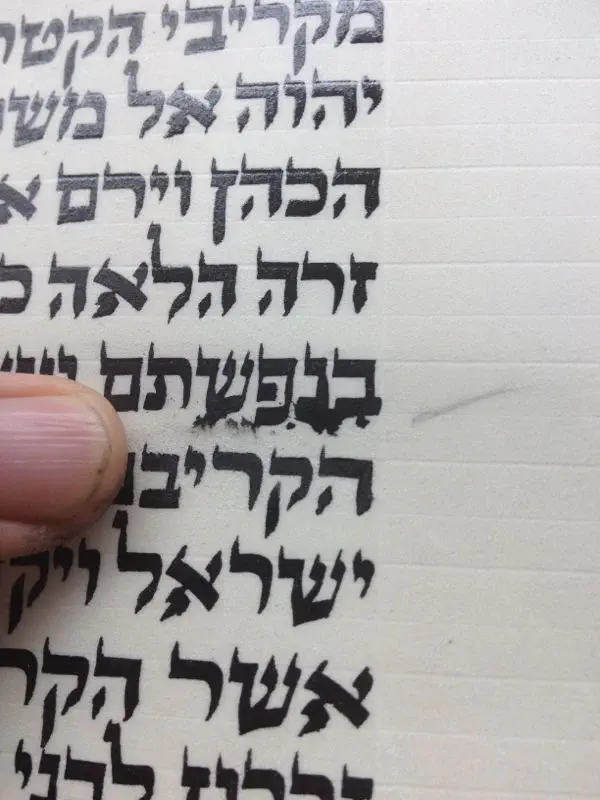 מקריבי הקטר
יהוה אל מש
הכהן וירם א
זרה הלאה כ
בנפשתם
הקריב
ישראל ויק
אשר הקר
זכרון לבני